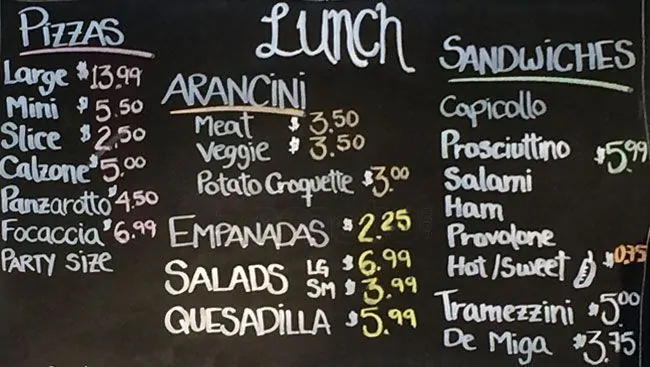 Lunch
PIZZAS
Large $13.99
Mini $5.50
Slice $2.50
Calzone $5.00
Panzarotto $4.50
Focaccia $6.99
PARTY SIZE
ARANCINI
Meat $3.50
Veggie $3.50
Potato Croquette $3.00
EMPANADAS $2.25
SALADS LG $6.99
SM $3.99
QUESADILLA $5.99
SANDWICHES
Capicollo
Prosciuttino $5.99
Salami
Ham
Provolone
Hot/Sweet $0.75
Tramezzini $5.00
De Miga $3.75